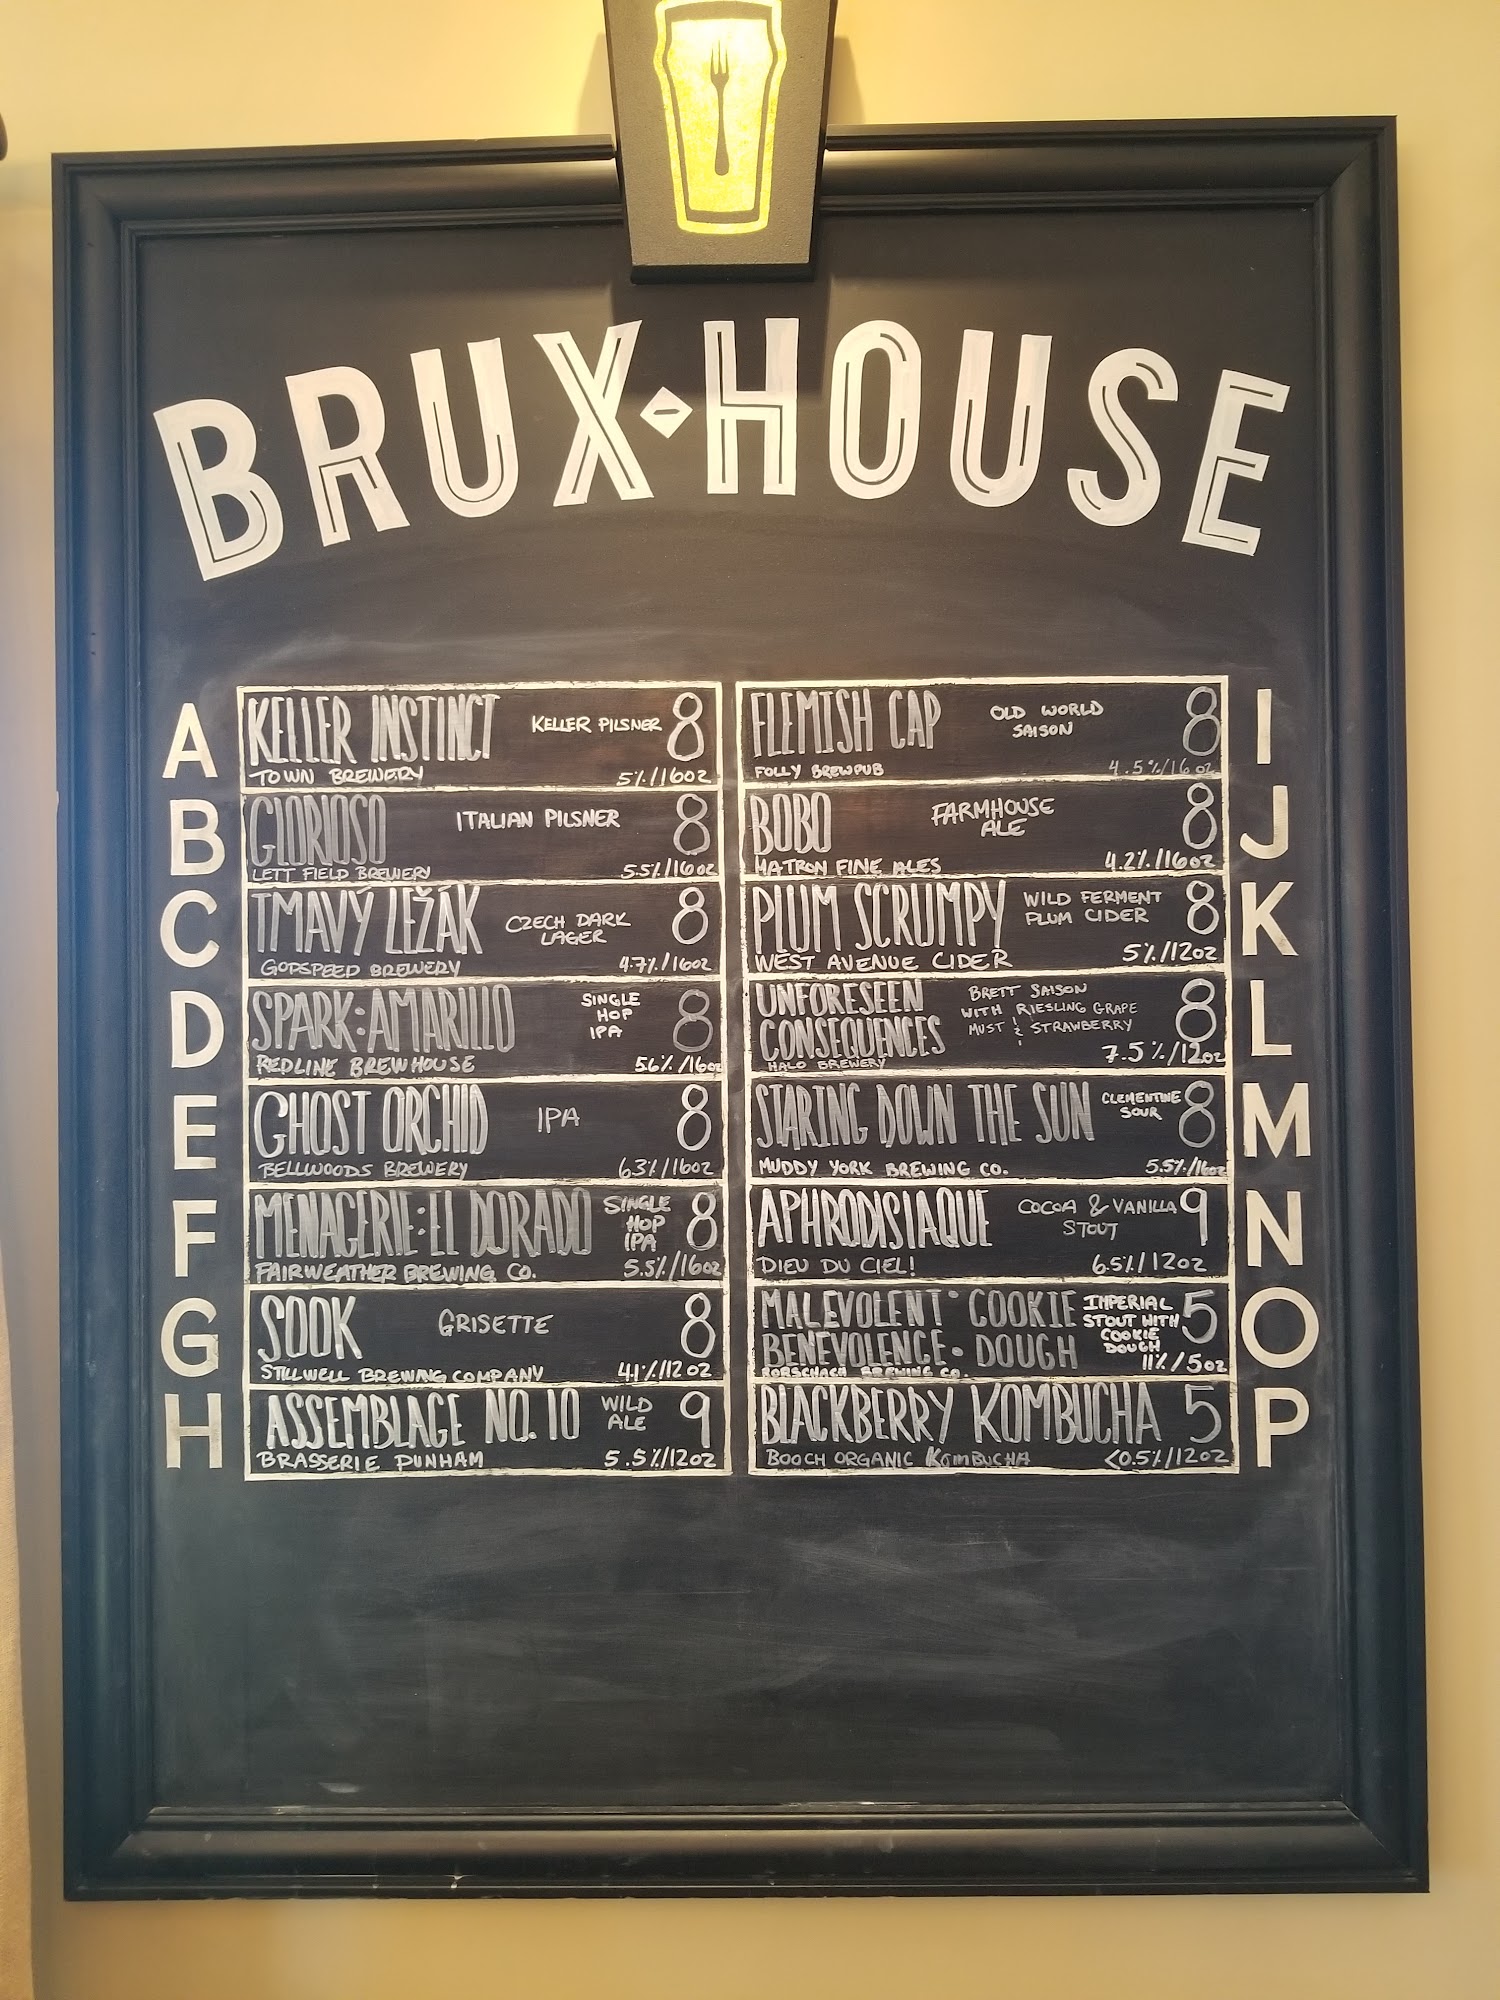 BRUX-HOUSE
A
KELLER INSTINCT KELLER PILSNER 8
TOWN BREWERY 5%/16oz
B
GLORIOSO ITALIAN PILSNER 8
LEFT FIELD BREWERY 5.5%/16oz
C
TMAVÝ LEŽÁK CZECH DARK LAGER 8
GODSPEED BREWERY 4.7%/16oz
D
SPARK: AMARILLO SINGLE HOP IPA 8
REDLINE BREWHOUSE 5.6%/16oz
E
GHOST ORCHID IPA 8
BELLWOODS BREWERY 6.3%/16oz
F
MENAGERIE: EL DORADO SINGLE HOP IPA 8
FAIRWEATHER BREWING CO. 5.5%/16oz
G
SOOK GRISETTE 8
STILLWELL BREWING COMPANY 4.1%/12oz
H
ASSEMBLAGE NO. 10 WILD ALE 9
BRASSERIE DUNHAM 5.5%/12oz
I
FLEMISH CAP OLD WORLD SAISON 8
FOLLY BREWPUB 4.5%/16oz
J
BOBO FARMHOUSE ALE 8
MATRON FINE ALES 4.2%/16oz
K
PLUM SCRUMPY WILD FERMENT PLUM CIDER 8
WEST AVENUE CIDER 5%/12oz
L
UNFORESEEN CONSEQUENCES BRETT SAISON WITH RIESLING GRAPE MUST & STRAWBERRY 8
HALO BREWERY 7.5%/12oz
M
STARING DOWN THE SUN CLEMENTINE SOUR 8
MUDDY YORK BREWING CO. 5.5%/16oz
N
APHRODISIAQUE COCOA & VANILLA STOUT 9
DIEU DU CIEL! 6.5%/12oz
O
MALEVOLENT COOKIE IMPERIAL STOUT WITH COOKIE DOUGH 5
BENEVOLENCE • DOUGH
RORSCHACH BREWING CO. 11%/5oz
P
BLACKBERRY KOMBUCHA 5
BOOCH ORGANIC KOMBUCHA <0.5%/12oz